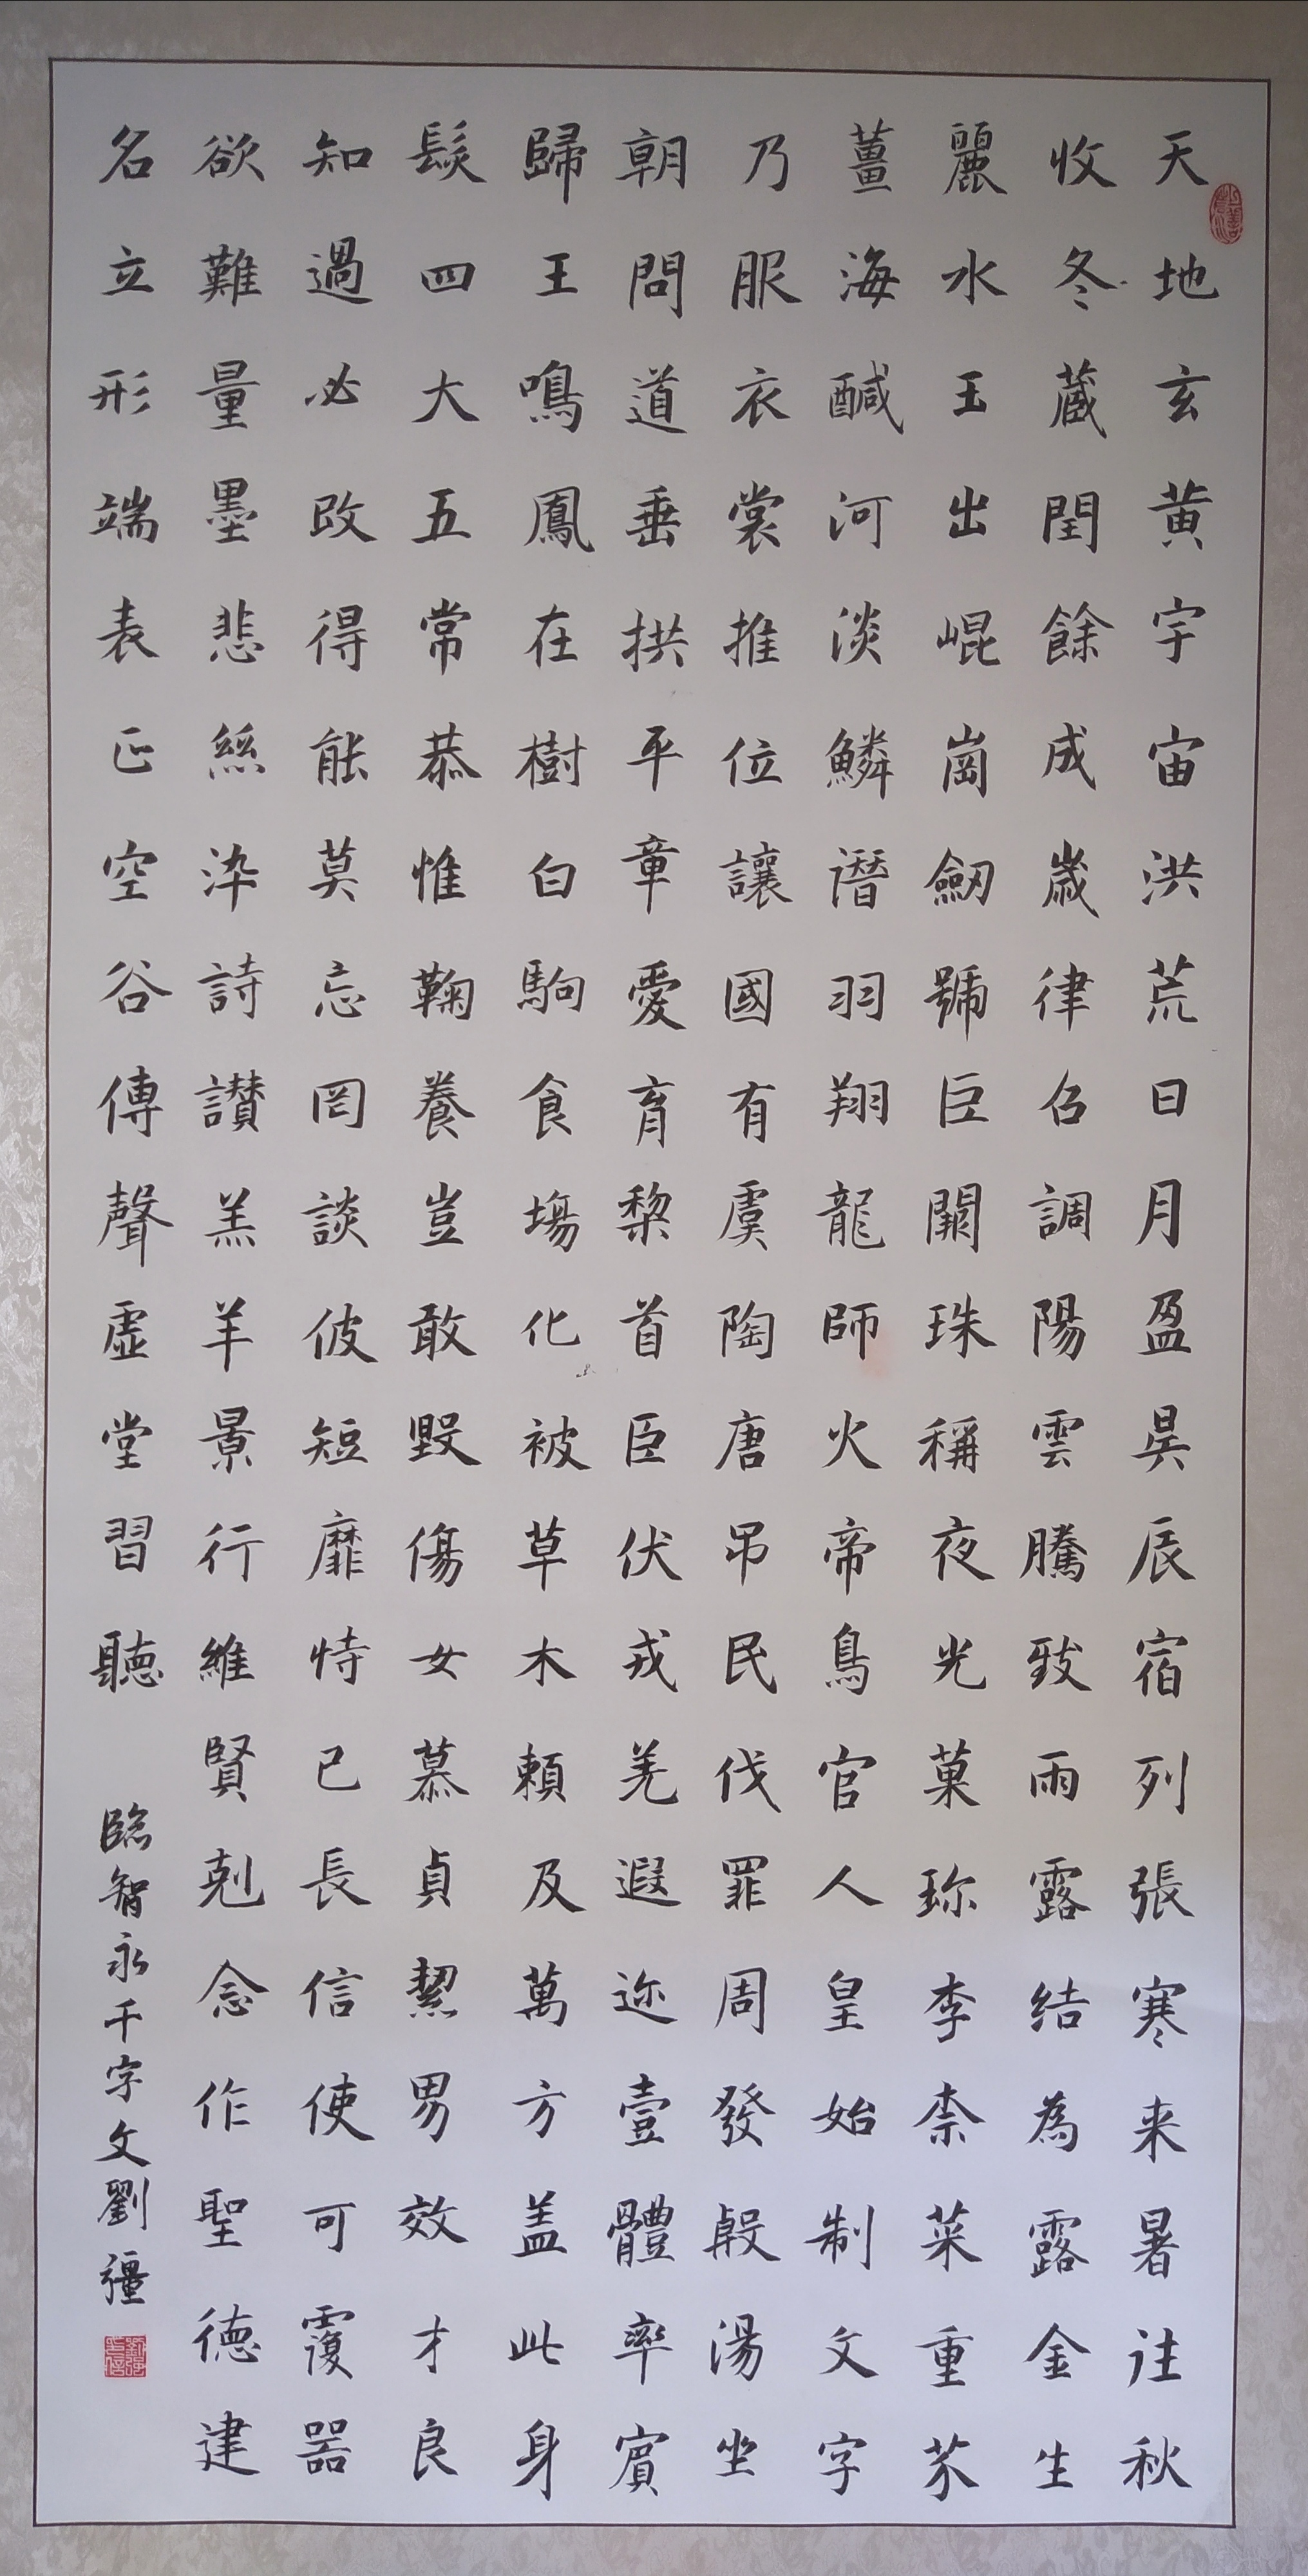 天地玄黃宇宙洪荒日月盈昃辰宿列張寒来暑往秋
收冬蔵閏餘成歲律召調陽雲騰致雨露结為露金生
麗水玉出崐崗劒號巨闕珠稱夜光菓珎李柰菜重芥
薑海醎河淡鱗潛羽翔龍師火帝鳥官人皇始制文字
乃服衣裳推位讓國有虞陶唐吊民伐罪周發殷湯坐
朝問道垂拱平章愛育黎首臣伏戎羌遐迩壹體率賓
歸王鳴鳳在樹白駒食場化被草木賴及萬方盖此身
髮四大五常恭惟鞠養豈敢毀傷女慕貞絜男效才良
知過必改得能莫忘罔談彼短靡恃己長信使可覆器
欲難量墨悲絲染詩讃羔羊景行維賢剋念作聖德建
名立形端表正空谷傳聲虛堂習聽
臨智永千字文劉彊